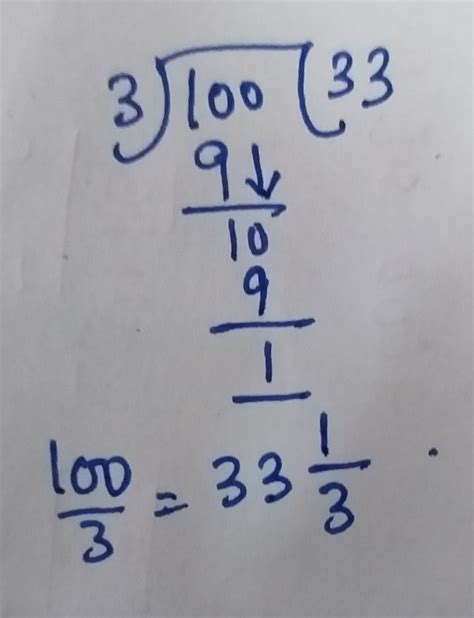 3)100(33
9↓
10
9
1
100/3 = 33 1/3 .